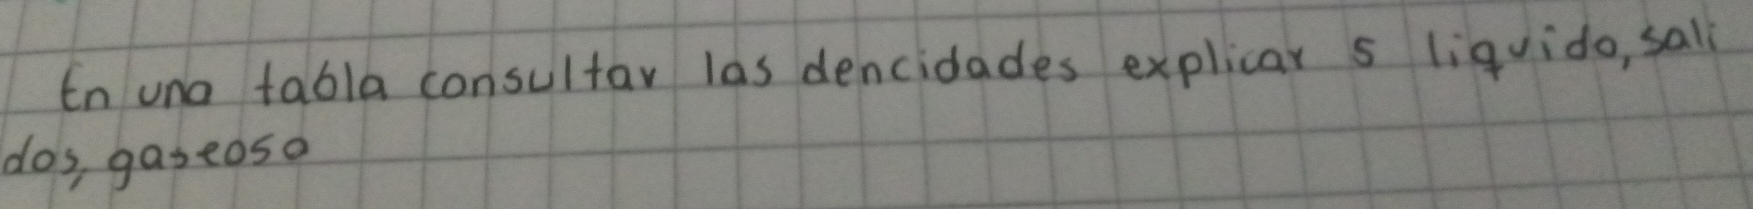 En una tabla consultar las dencidades explicar 5 liquido, sali
dos, gaseoso